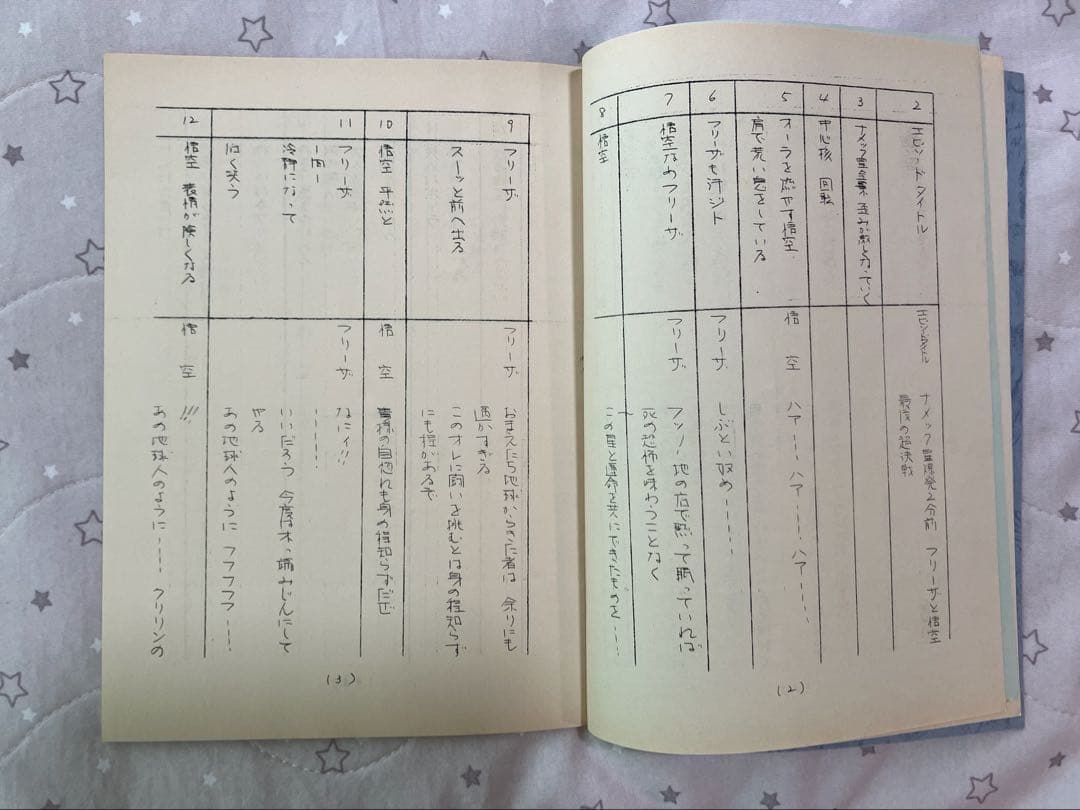 2
エピソードタイトル
エピソードタイトル
ナメック星爆発2分前 フリーザと悟空
最後の超決戦
3
ナメック星全景 歪みが激しくなっていく
4
中心核 回転
5
オーラを燃やす悟空
肩で荒い息をしている
悟空
ハァーー、ハァー…、ハァー……
6
フリーザも汗ジト
フリーザ
しぶとい奴め……
7
悟空なめフリーザ
フリーザ
フンッ! 地の底で黙って眠っていれば
死の恐怖を味わうことなく
この星と運命を共にできたものを……
8
悟空
(2)
9
フリーザ
スーッと前へ出る
フリーザ
おまえたち地球からきた者は 余りにも
愚かすぎる
このオレに闘いを挑むとは身の程知らず
にも程があるぞ
10
悟空 平然と
悟空
貴様の自惚れも身の程知らずだぜ
11
フリーザ
一同一
冷静になって
フリーザ
なにィ!!
……
いいだろう 今度は木っ端みじんにして
やる
あの地球人のように フフフフフ……
12
悟空 表情が険しくなる
悟空
!!!
あの地球人のように…… クリリンの
(3)